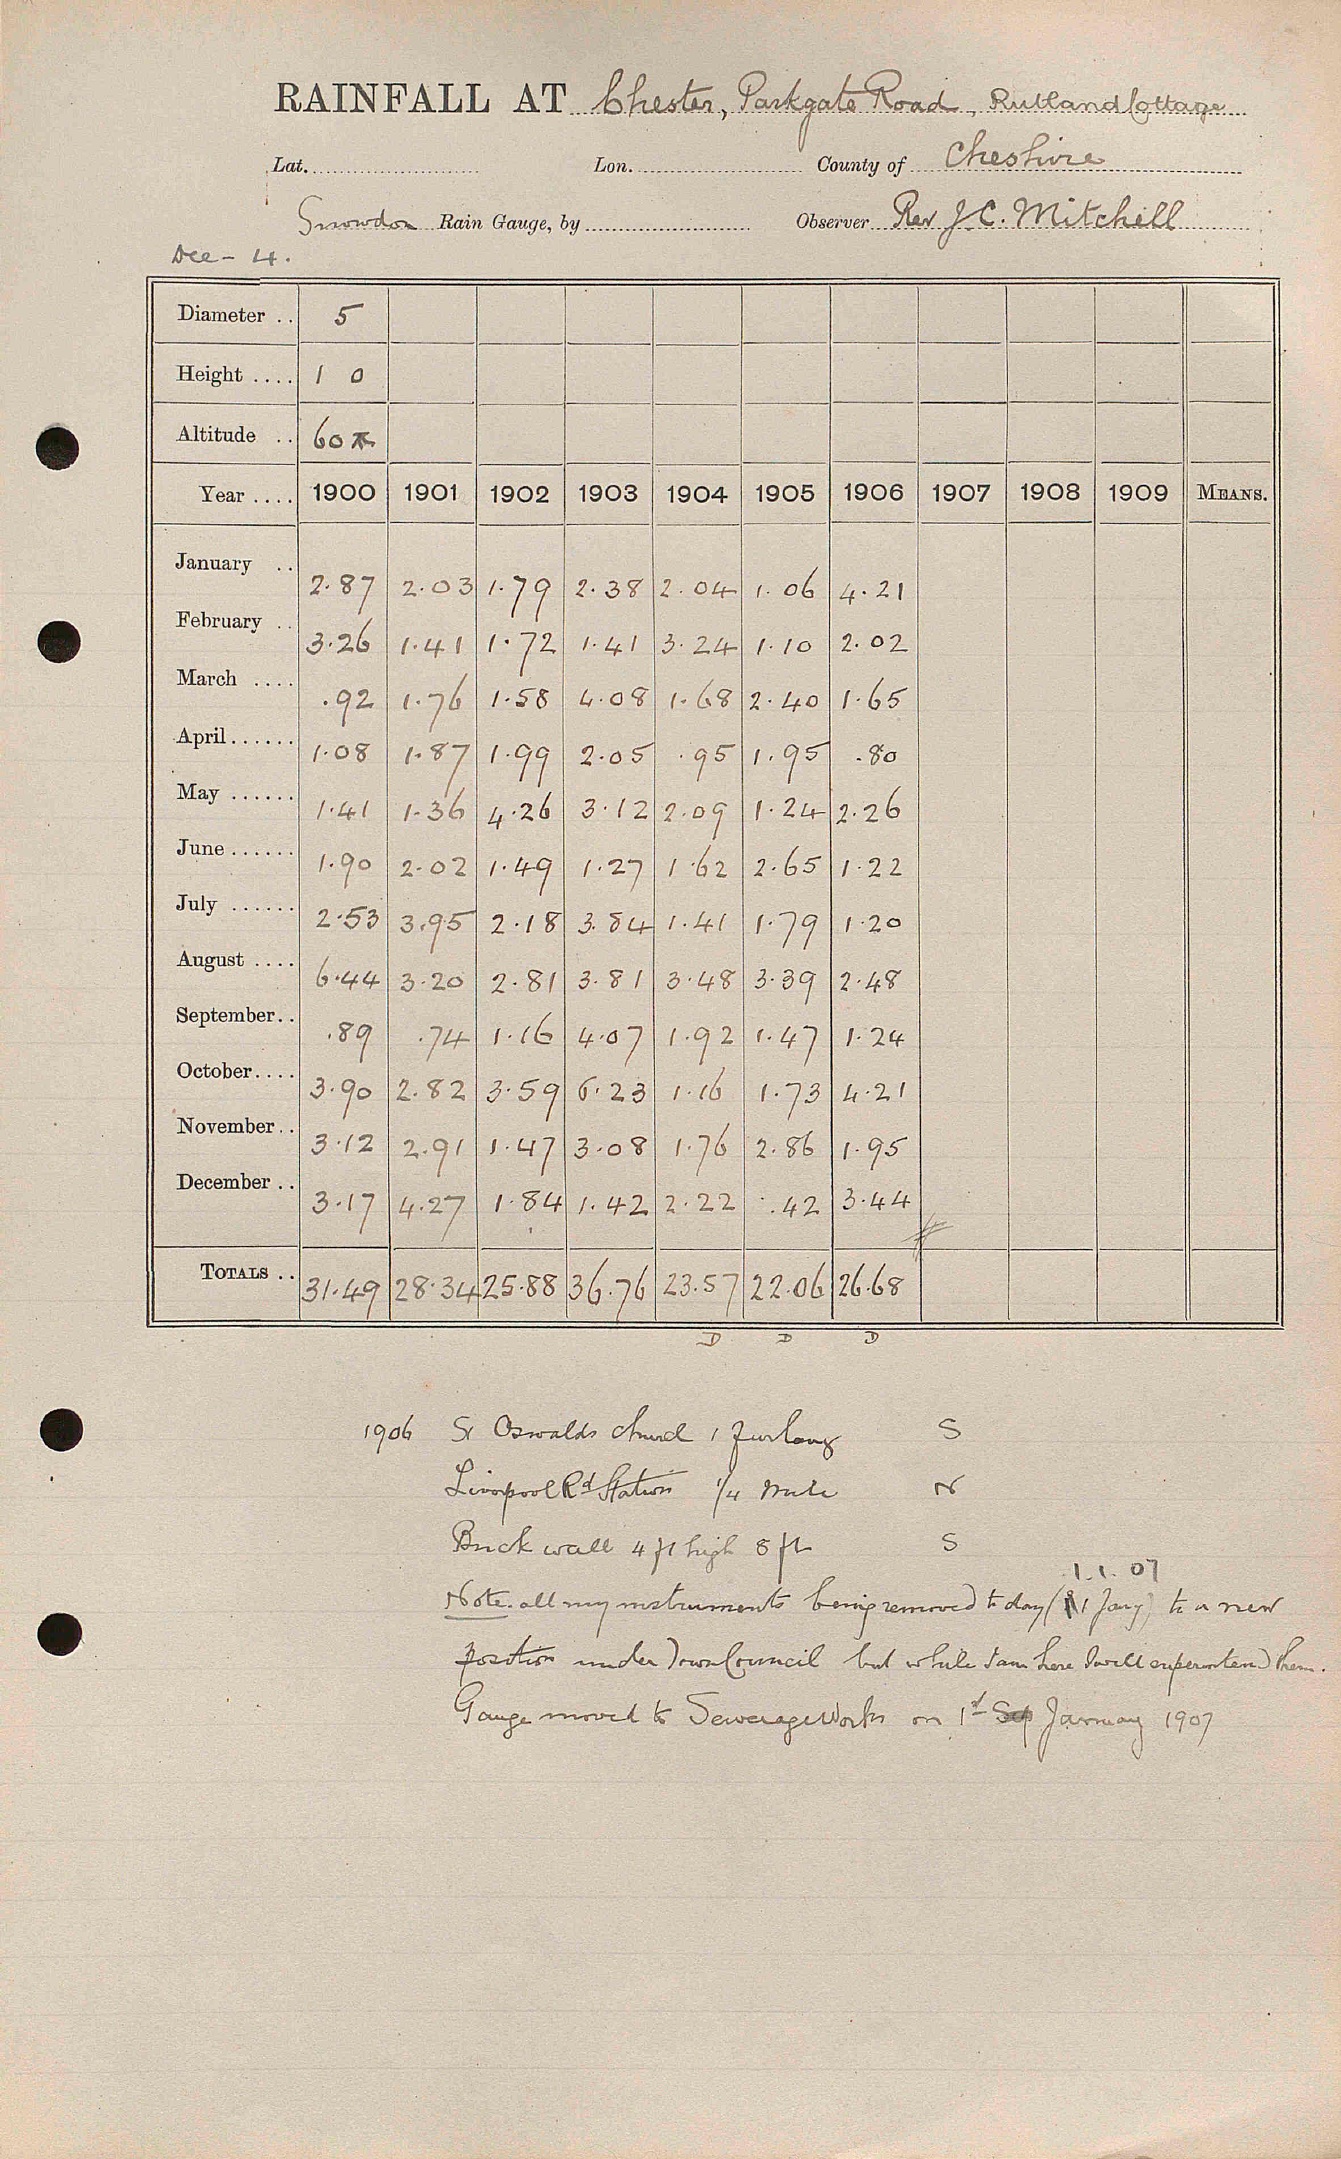 RAINFALL AT Chester, Parkgate Road, Rutland Cottage
Lat. Lon. County of Cheshire
Snowdon Rain Gauge, by Observer Rev J.C. Mitchell
Dec - 4.
Diameter .. 5
Height .... 1 0
Altitude .. 60
Year .... 1900 1901 1902 1903 1904 1905 1906 1907 1908 1909 MEANS.
January .. 2.87 2.03 1.79 2.38 2.04 1.06 4.21
February .. 3.26 1.41 1.72 1.41 3.24 1.10 2.02
March .... .92 1.76 1.58 4.08 1.68 2.40 1.65
April ...... 1.08 1.87 1.99 2.05 .95 1.95 .80
May ...... 1.41 1.36 4.26 3.12 2.09 1.24 2.26
June ...... 1.90 2.02 1.49 1.27 1.62 2.65 1.22
July ...... 2.53 3.95 2.18 3.84 1.41 1.79 1.20
August .... 6.44 3.20 2.81 3.81 3.48 3.39 2.48
September.. .89 .74 1.16 4.07 1.92 1.47 1.24
October.... 3.90 2.82 3.59 6.23 1.16 1.73 4.21
November.. 3.12 2.91 1.47 3.08 1.76 2.86 1.95
December .. 3.17 4.27 1.84 1.42 2.22 .42 3.44
TOTALS .. 31.49 28.34 25.88 36.76 23.57 22.06 26.68
D D D
1906 St Oswalds church 1 furlong S
Liverpool Rd Station 1/4 mile N
Brick wall 4 ft high 8 ft S
1.1.07
Note. all my instruments being removed to day (1 Jany) to a new
position under Town Council but while I am here I will superintend them.
Gauge moved to Sewerage Works on 1st January 1907